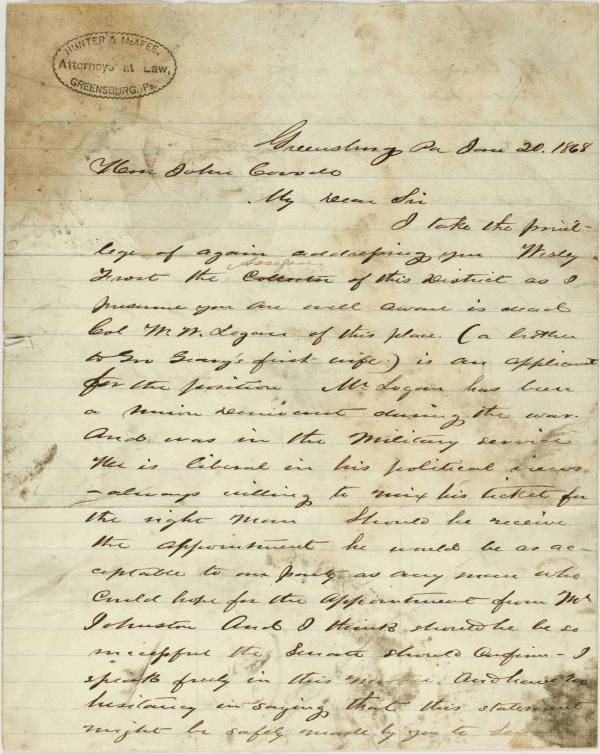 HUNTER & McAFEE,
Attorneys at Law,
GREENSBURG, Pa.
Greensburg Pa Jan 20. 1868
Hon John Covode
My Dear Sir
I take the privi-
lege of again addressing you Wesly
Assessor
Frost the Collector of this District as I
presume you are well aware is dead
Col W. W. Logan of this place. (a brother
to Gov Geary's first wife) is an applicant
for the position Mr Logan has been
a union Democrat during the war.
And was in the Military service
He is liberal in his political views
– always willing to mix his ticket for
the right man Should he receive
the appointment he would be as ac-
ceptable to our party as any man who
could hope for the Appointment from Mr
Johnston And I think should he be so
successful the Senate should Confirm – I
speak freely in this matter And have no
hesitancy in saying that this statement
might be safely made by you to